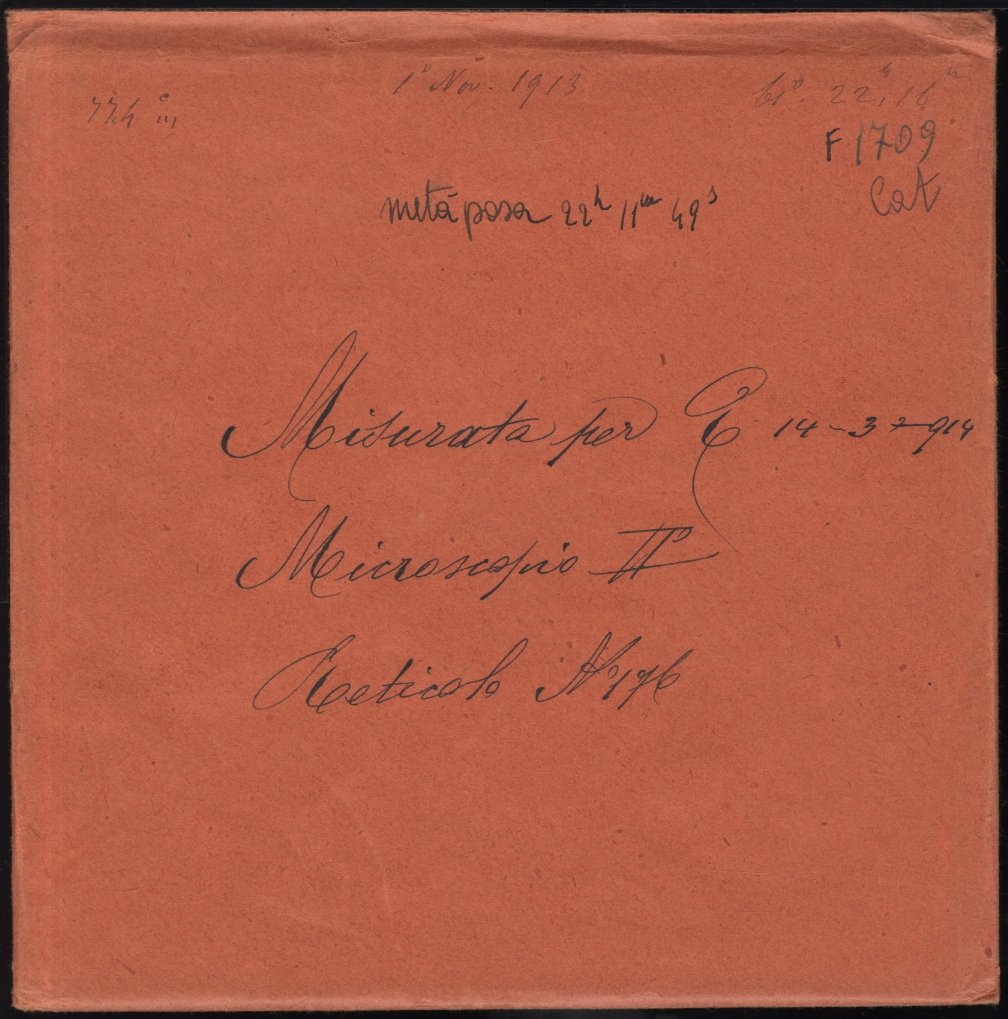 1º Nov. 1913
22h 16m
F 1709
Cat
metà posa 22h 11m 49s
Misurata per E 14-3-914
Microscopio IIº
Reticolo Nº 176